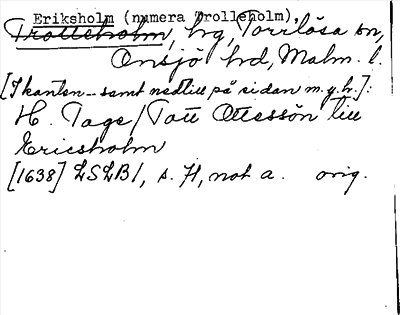 Eriksholm (numera Trolleholm),
Trolleholm, hg, Torrlösa sn,
Onsjö hd, Malm. l.
[I kanten – samt nedtill på sidan m.y.h.]:
H. Tage / Tott Ottessön till
Ericsholm
[1638] LSLB1, s. 71, not a. orig.